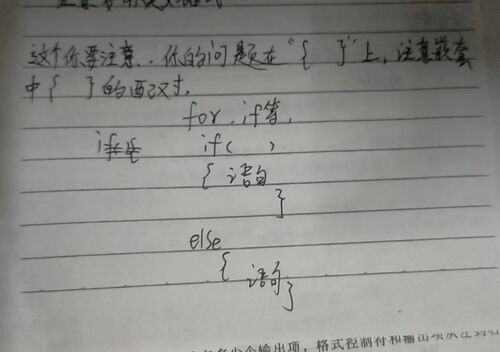 这个你要注意. 你的问题在"{ }"上, 注意嵌套
中{ }的匹对.
for, if等,
if( )
{ 语句
}
else
{
语句
}
个输出项, 格式控制符和输出项从左到右